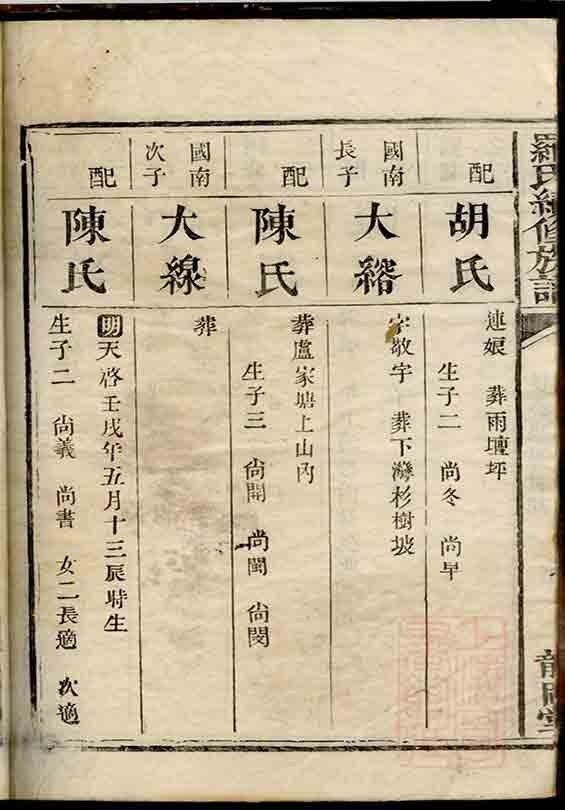 羅氏續修族譜
配
胡氏
連娘 葬雨壇坪
生子二 尚冬 尚早
國南
長子
大綹
字敬宇 葬下灣杉樹坡
配
陳氏
葬盧家塘上山內
生子三 尚開 尚閩 尚閔
國南
次子
大線
葬
配
陳氏
明天啓壬戌年五月十三辰時生
生子二 尚義 尚書 女二長適 次適